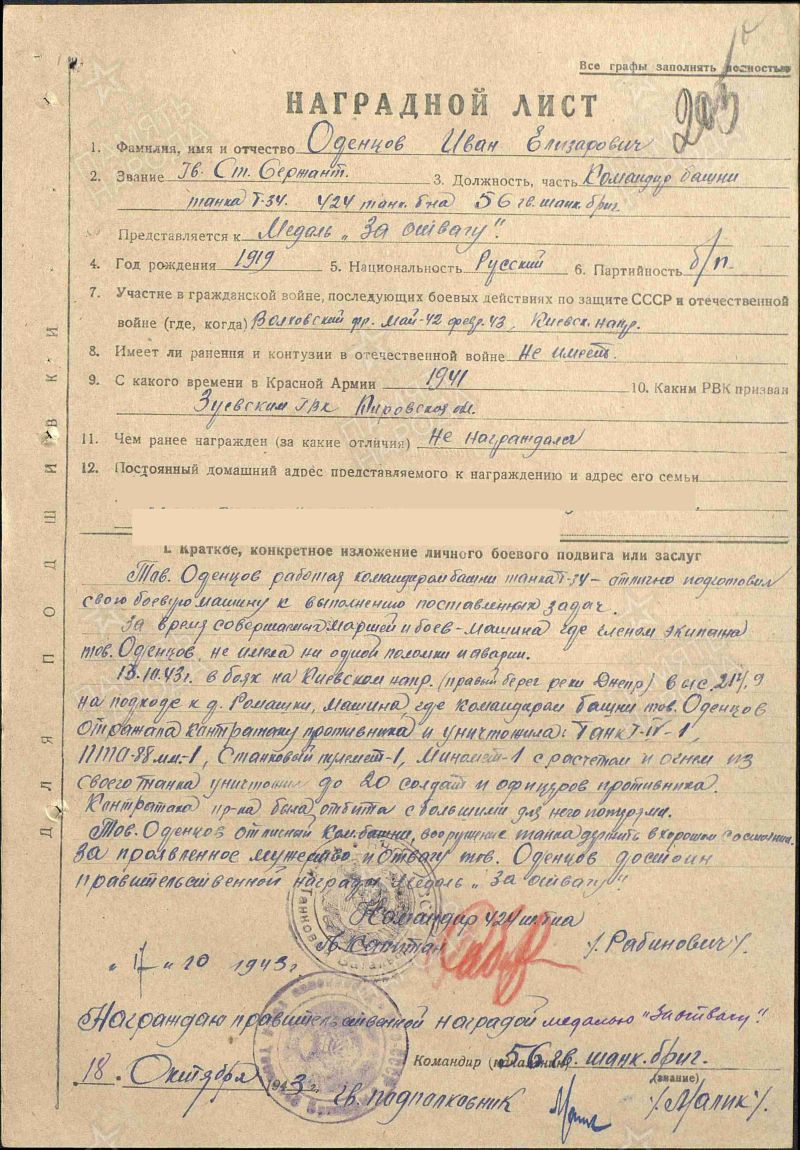 Все графы заполнять полностью
НАГРАДНОЙ ЛИСТ
1. Фамилия, имя и отчество Оденцов Иван Елизарович
2. Звание Гв. Ст. Сержант. 3. Должность, часть Командир башни
танка Т-34. 424 танк. б-на 56 гв. танк. бриг.
Представляется к Медаль „За отвагу".
4. Год рождения 1919 5. Национальность Русский 6. Партийность б/п.
7. Участие в гражданской войне, последующих боевых действиях по защите СССР и отечественной
войне (где, когда) Волховский фр. Май-42 февр. 43, Киевск. напр.
8. Имеет ли ранения и контузии в отечественной войне Не имеет.
9. С какого времени в Красной Армии 1941 10. Каким РВК призван
Зуевским РВК Кировской обл.
11. Чем ранее награжден (за какие отличия) Не награждался
12. Постоянный домашний адрес представляемого к награждению и адрес его семьи
I. Краткое, конкретное изложение личного боевого подвига или заслуг
Тов. Оденцов работая командиром башни танка Т-34 - отлично подготовил
свою боевую машину к выполнению поставленных задач.
За время совершаемых маршей и боев - машина где членом экипажа
тов. Оденцов, не имела ни одной поломки и аварии.
в боях на Киевском напр. (правый берег реки Днепр) в выс. 217,9
на подходе к д. Ромашки, машина где командиром башни тов. Оденцов
отражала контратаку противника и уничтожила: Танк Т-IV-1,
ППА-88 мм.-1, Станковый пулемет-1, Миномет-1 с расчетом и огнем из
своего танка уничтожил до 20 солдат и офицеров противника.
Контратака пр-ка была отбита с большими для него потерями.
Тов. Оденцов отличный ком. башни, вооружение танка держит в хорошем состоянии.
За проявленное мужество и отвагу тов. Оденцов достоин
правительственной награды Медаль „За отвагу"
Командир 424
Гв. Капитан /Рабинович/.
„17" 10 1943 г.
Награждаю правительственной наградой медалью "За отвагу".
Командир 56 гв. танк. бриг.
(звание)
18. Октября 1943 г. гв. подполковник /Малик/.
ДЛЯ ПОДШИВКИ